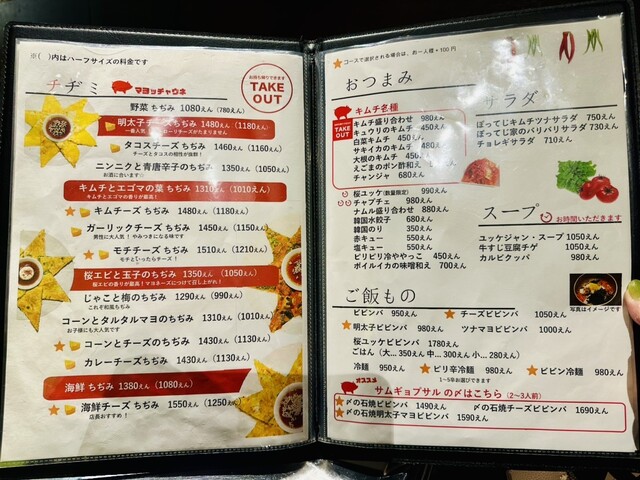 ※( )内はハーフサイズの料金です
チヂミ
マヨッチャウネ
お持ち帰りできます
TAKE OUT
野菜 ちぢみ 1080えん (780えん)
明太子チーズ ちぢみ 1480えん (1180えん)
タコスチーズ ちぢみ 1460えん (1160えん)
チーズとタコスの相性が抜群！
ニンニクと青唐辛子のちぢみ 1350えん (1050えん)
お酒に合います
キムチとエゴマの葉 ちぢみ 1310えん (1010えん)
キムチとエゴマの香りが最高！
★キムチーズ ちぢみ 1480えん (1180えん)
ガーリックチーズ ちぢみ 1450えん (1150えん)
男性に大人気！やみつきになる味です
★モチチーズ ちぢみ 1510えん (1210えん)
モチといったらチーズ！
桜エビと玉子のちぢみ 1350えん (1050えん)
桜エビの香りが最高！マヨネーズにつけて召し上がれ！
じゃこと梅のちぢみ 1290えん (990えん)
これぞ和風ちぢみ
コーンとタルタルマヨのちぢみ 1310えん (1010えん)
お子様にも大人気です
★コーンとチーズ ちぢみ 1430えん (1130えん)
カレーチーズ ちぢみ 1430えん (1130えん)
海鮮 ちぢみ 1380えん (1080えん)
★海鮮チーズ ちぢみ 1550えん (1250えん)
店長おすすめ！
★コースで選択される場合は、お一人様＋100円
おつまみ
キムチ各種
TAKE OUT
キムチ盛り合わせ 980えん
キュウリのキムチ 450えん
白菜キムチ 450えん
サキイカのキムチ 480えん
大根のキムチ 450えん
えごまのポン酢和え 680えん
チャンジャ 680えん
桜ユッケ(数量限定) 990えん
チャプチェ 980えん
ナムル盛り合わせ 880えん
韓国水餃子 680えん
韓国のり 350えん
赤キュー 550えん
塩キュー 550えん
ピリピリ冷ややっこ 450えん
ボイルイカの味噌和え 700えん
サラダ
ぼってじキムチツナサラダ 750えん
ぼってじ家のバリバリサラダ 730えん
チョレギサラダ 710えん
スープ
お時間いただきます
ユッケジャン・スープ 1050えん
牛すじ豆腐チゲ 1050えん
カルビクッパ 980えん
写真はイメージです
ご飯もの
ビビンバ 950えん ★チーズビビンバ 1050えん
★明太子ビビンバ 980えん ツナマヨビビンバ 1000えん
桜ユッケビビンバ 1780えん
ごはん (大…350えん 中…300えん 小…280えん)
冷麺 950えん ★ピリ辛冷麺 980えん ★ビビン冷麺 980えん
1〜5辛お選びできます
オススメ
サムギョプサル の〆はこちら (2〜3人前)
★〆の石焼ビビンバ 1490えん 〆の石焼チーズビビンバ 1690えん
★〆の石焼明太子マヨビビンバ 1590えん